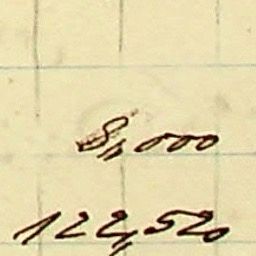 8,000
122,520